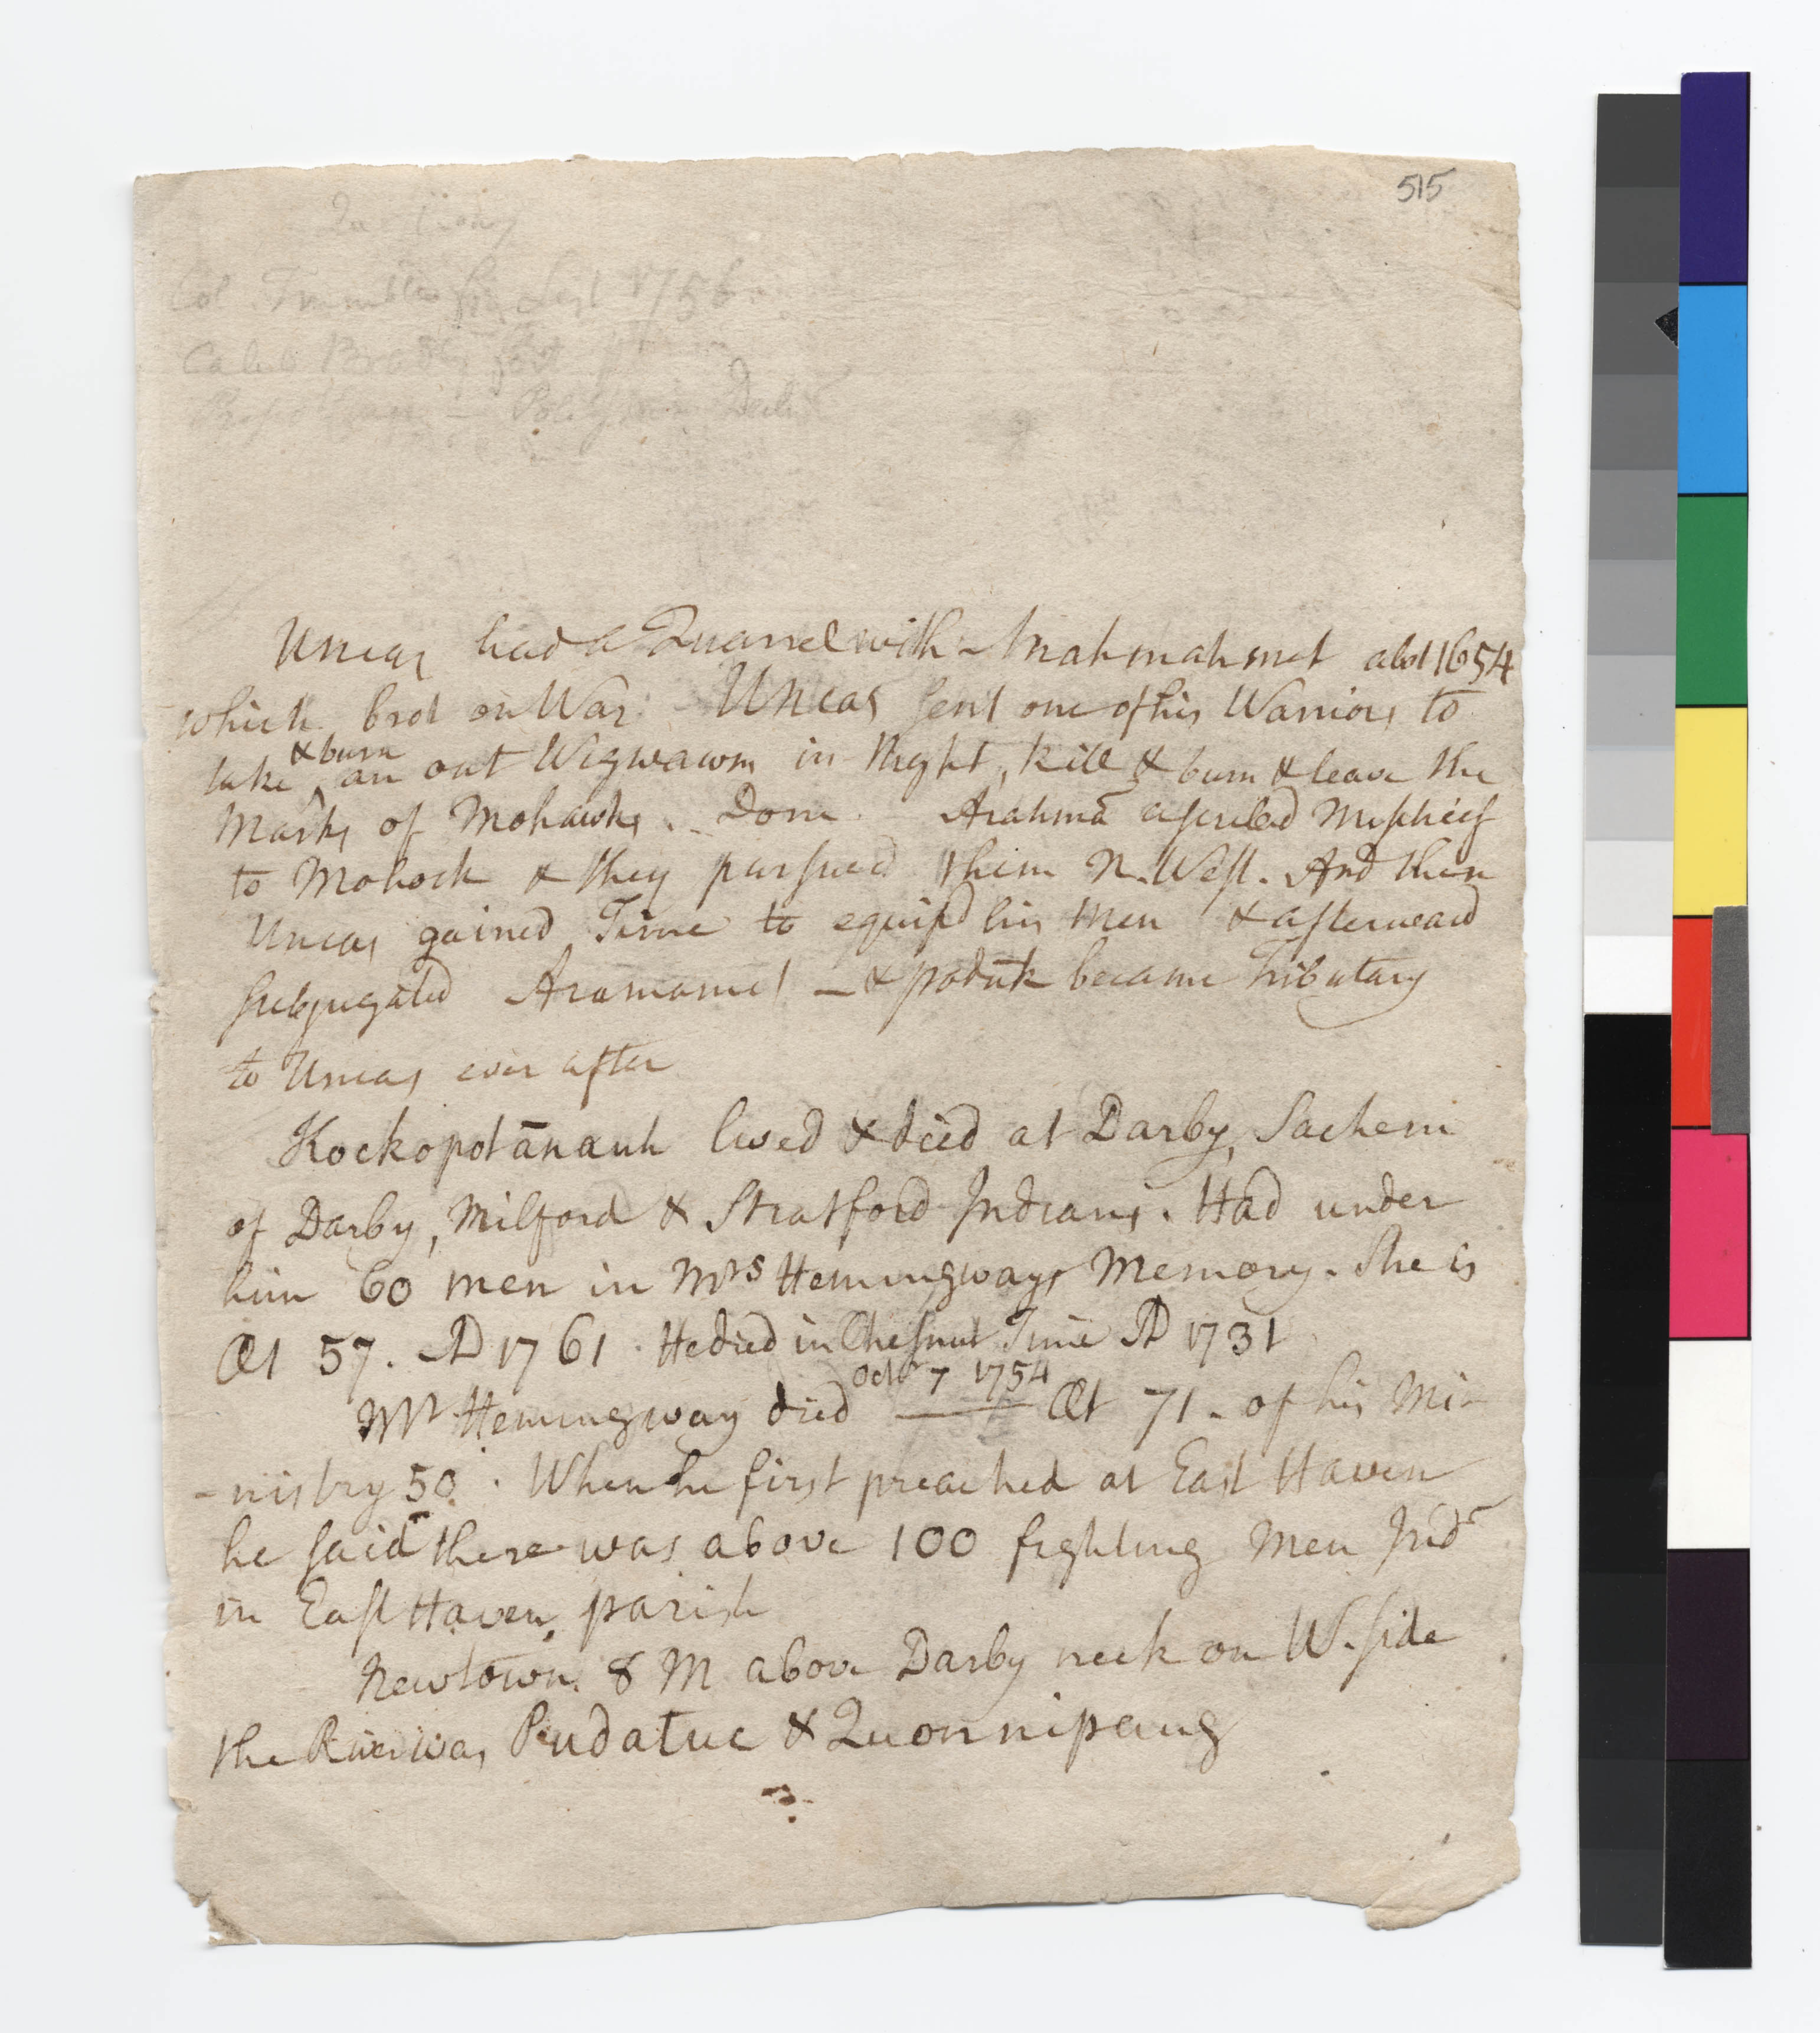 515
Col. Trumble 1756
Caleb
Uncas had a Quarrel with Arahmahmet abot 1654
which brot on War. Uncas sent one of his Warriors to
take ^& burn an out Wigwawm in Night, kill & burn & leave the
Marks of Mohawks. Done. Arahmā ascribed Mischief
to Mohock & they pursued them N. West. And then
Uncas gained Time to equip'd his Men & afterward
subjugated Aramamet — & poduk became Tributary
to Uncas ever after
Kockopotānauh lived & died at Darby, Sachem
of Darby, Milford & Stratford Indians. Had under
him 60 men in Mrs Hemingways Memory. She is
Æt 57. AD 1761. He died in Chesnut Time AD 1731
Octo 7 1754
Mr Hemingway died —— Æt 71. of his Mi-
-nistry 50. When he first preached at East Haven
he said there was above 100 fighting Men Inds
in East Haven parish
Newtown. 8 M above Darby neck on W. side
the River was Pudatuc & Quonnipaug